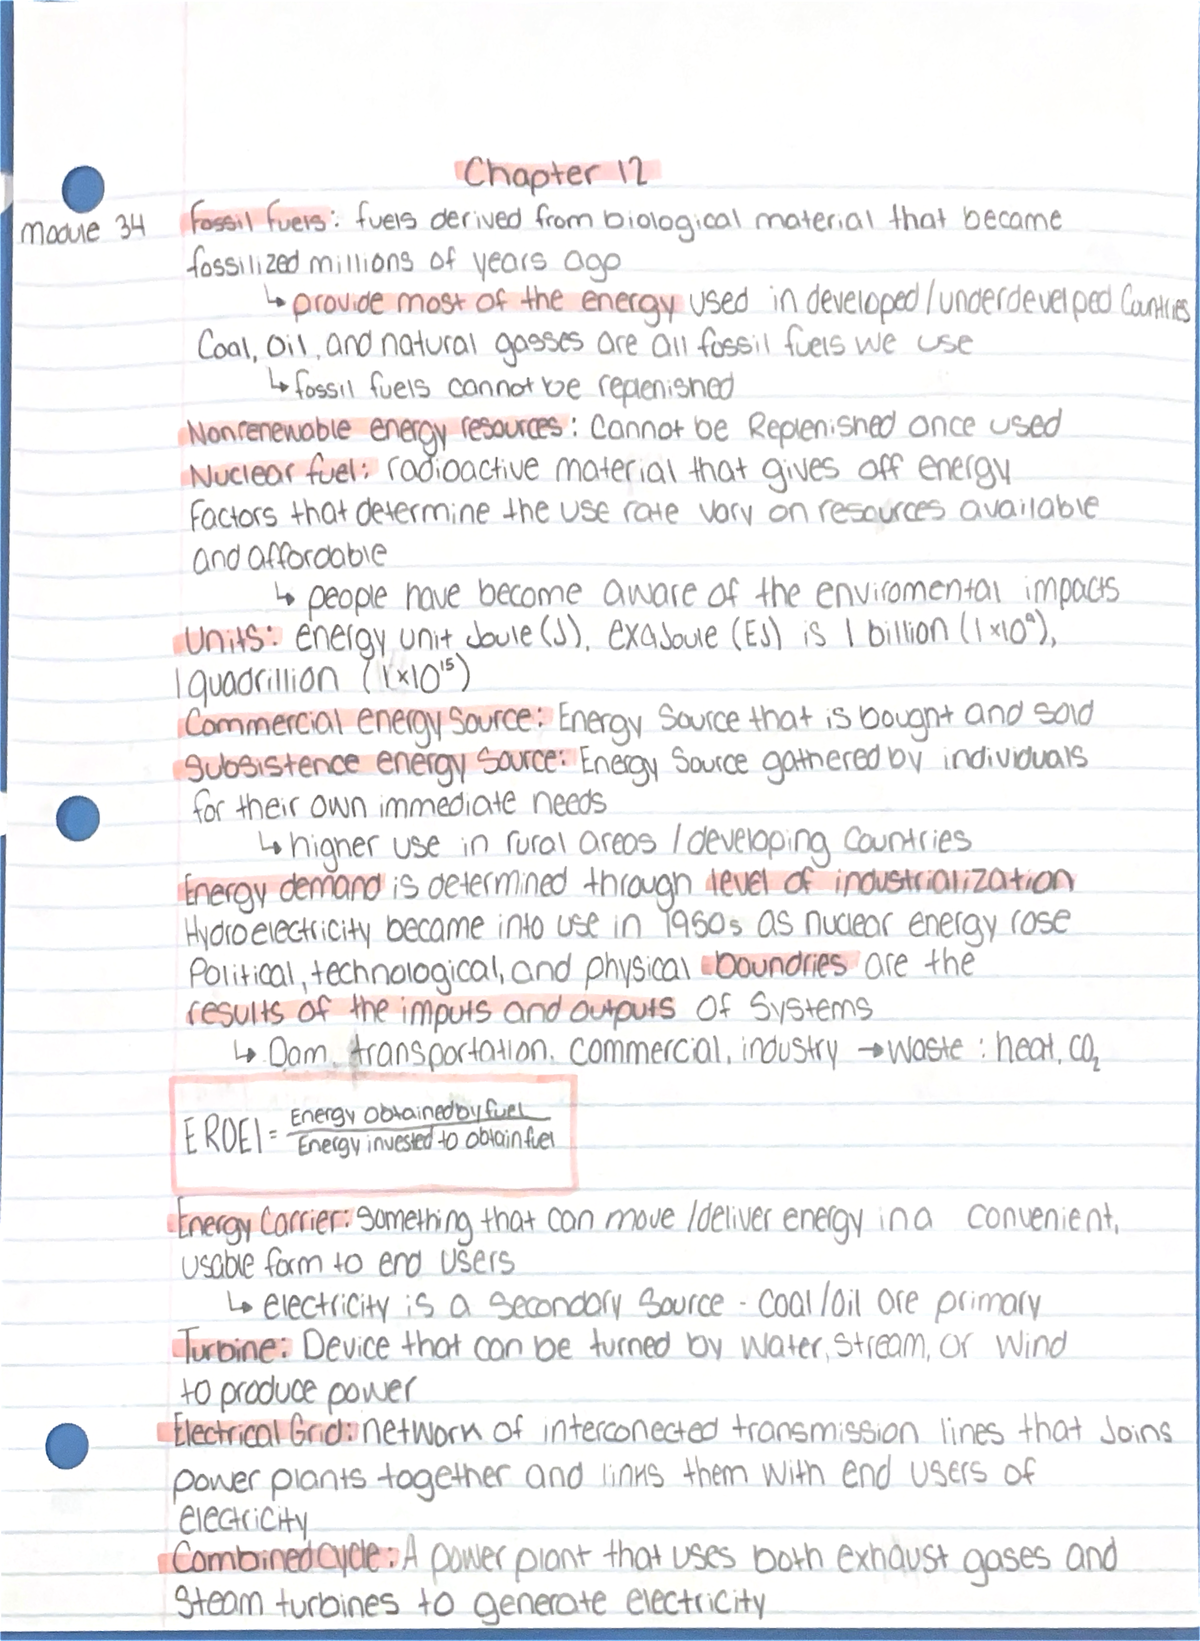 Chapter 12
Module 34
Fossil Fuels: fuels derived from biological material that became
fossilized millions of years ago
↳ provide most of the energy used in developed/underdevelped Countries
Coal, Oil, and natural gasses are all fossil fuels we use
↳ fossil fuels cannot be replenished
Nonrenewable energy resources: Cannot be Replenished once used
Nuclear fuel: radioactive material that gives off energy
Factors that determine the use rate vary on resources available
and affordable
↳ people have become aware of the enviromental impacts
Units: energy unit Joule (J), exaJoule (EJ) is 1 billion (1×10⁹),
1 quadrillion (1×10¹⁵)
Commercial energy Source: Energy Source that is bought and sold
Subsistence energy Source: Energy Source gathered by individuals
for their own immediate needs
↳ higher use in rural areas / developing Countries
Energy demand is determined through level of industrialization
Hydroelectricity became into use in 1950s as nuclear energy rose
Political, technological, and physical boundries are the
results of the imputs and outputs of Systems
↳ Dam, transportation, commercial, industry → waste : heat, CO₂
EROEI = Energy obtained by fuel
Energy invested to obtain fuel
Energy Carrier: Something that can move /deliver energy in a convenient,
usable form to end users
↳ electricity is a secondary source - coal/oil are primary
Turbine: Device that can be turned by water, stream, or wind
to produce power
Electrical Grid: network of interconected transmission lines that Joins
power plants together and links them with end users of
electricity
Combined Cycle: A power plant that uses both exhaust gases and
Steam turbines to generate electricity